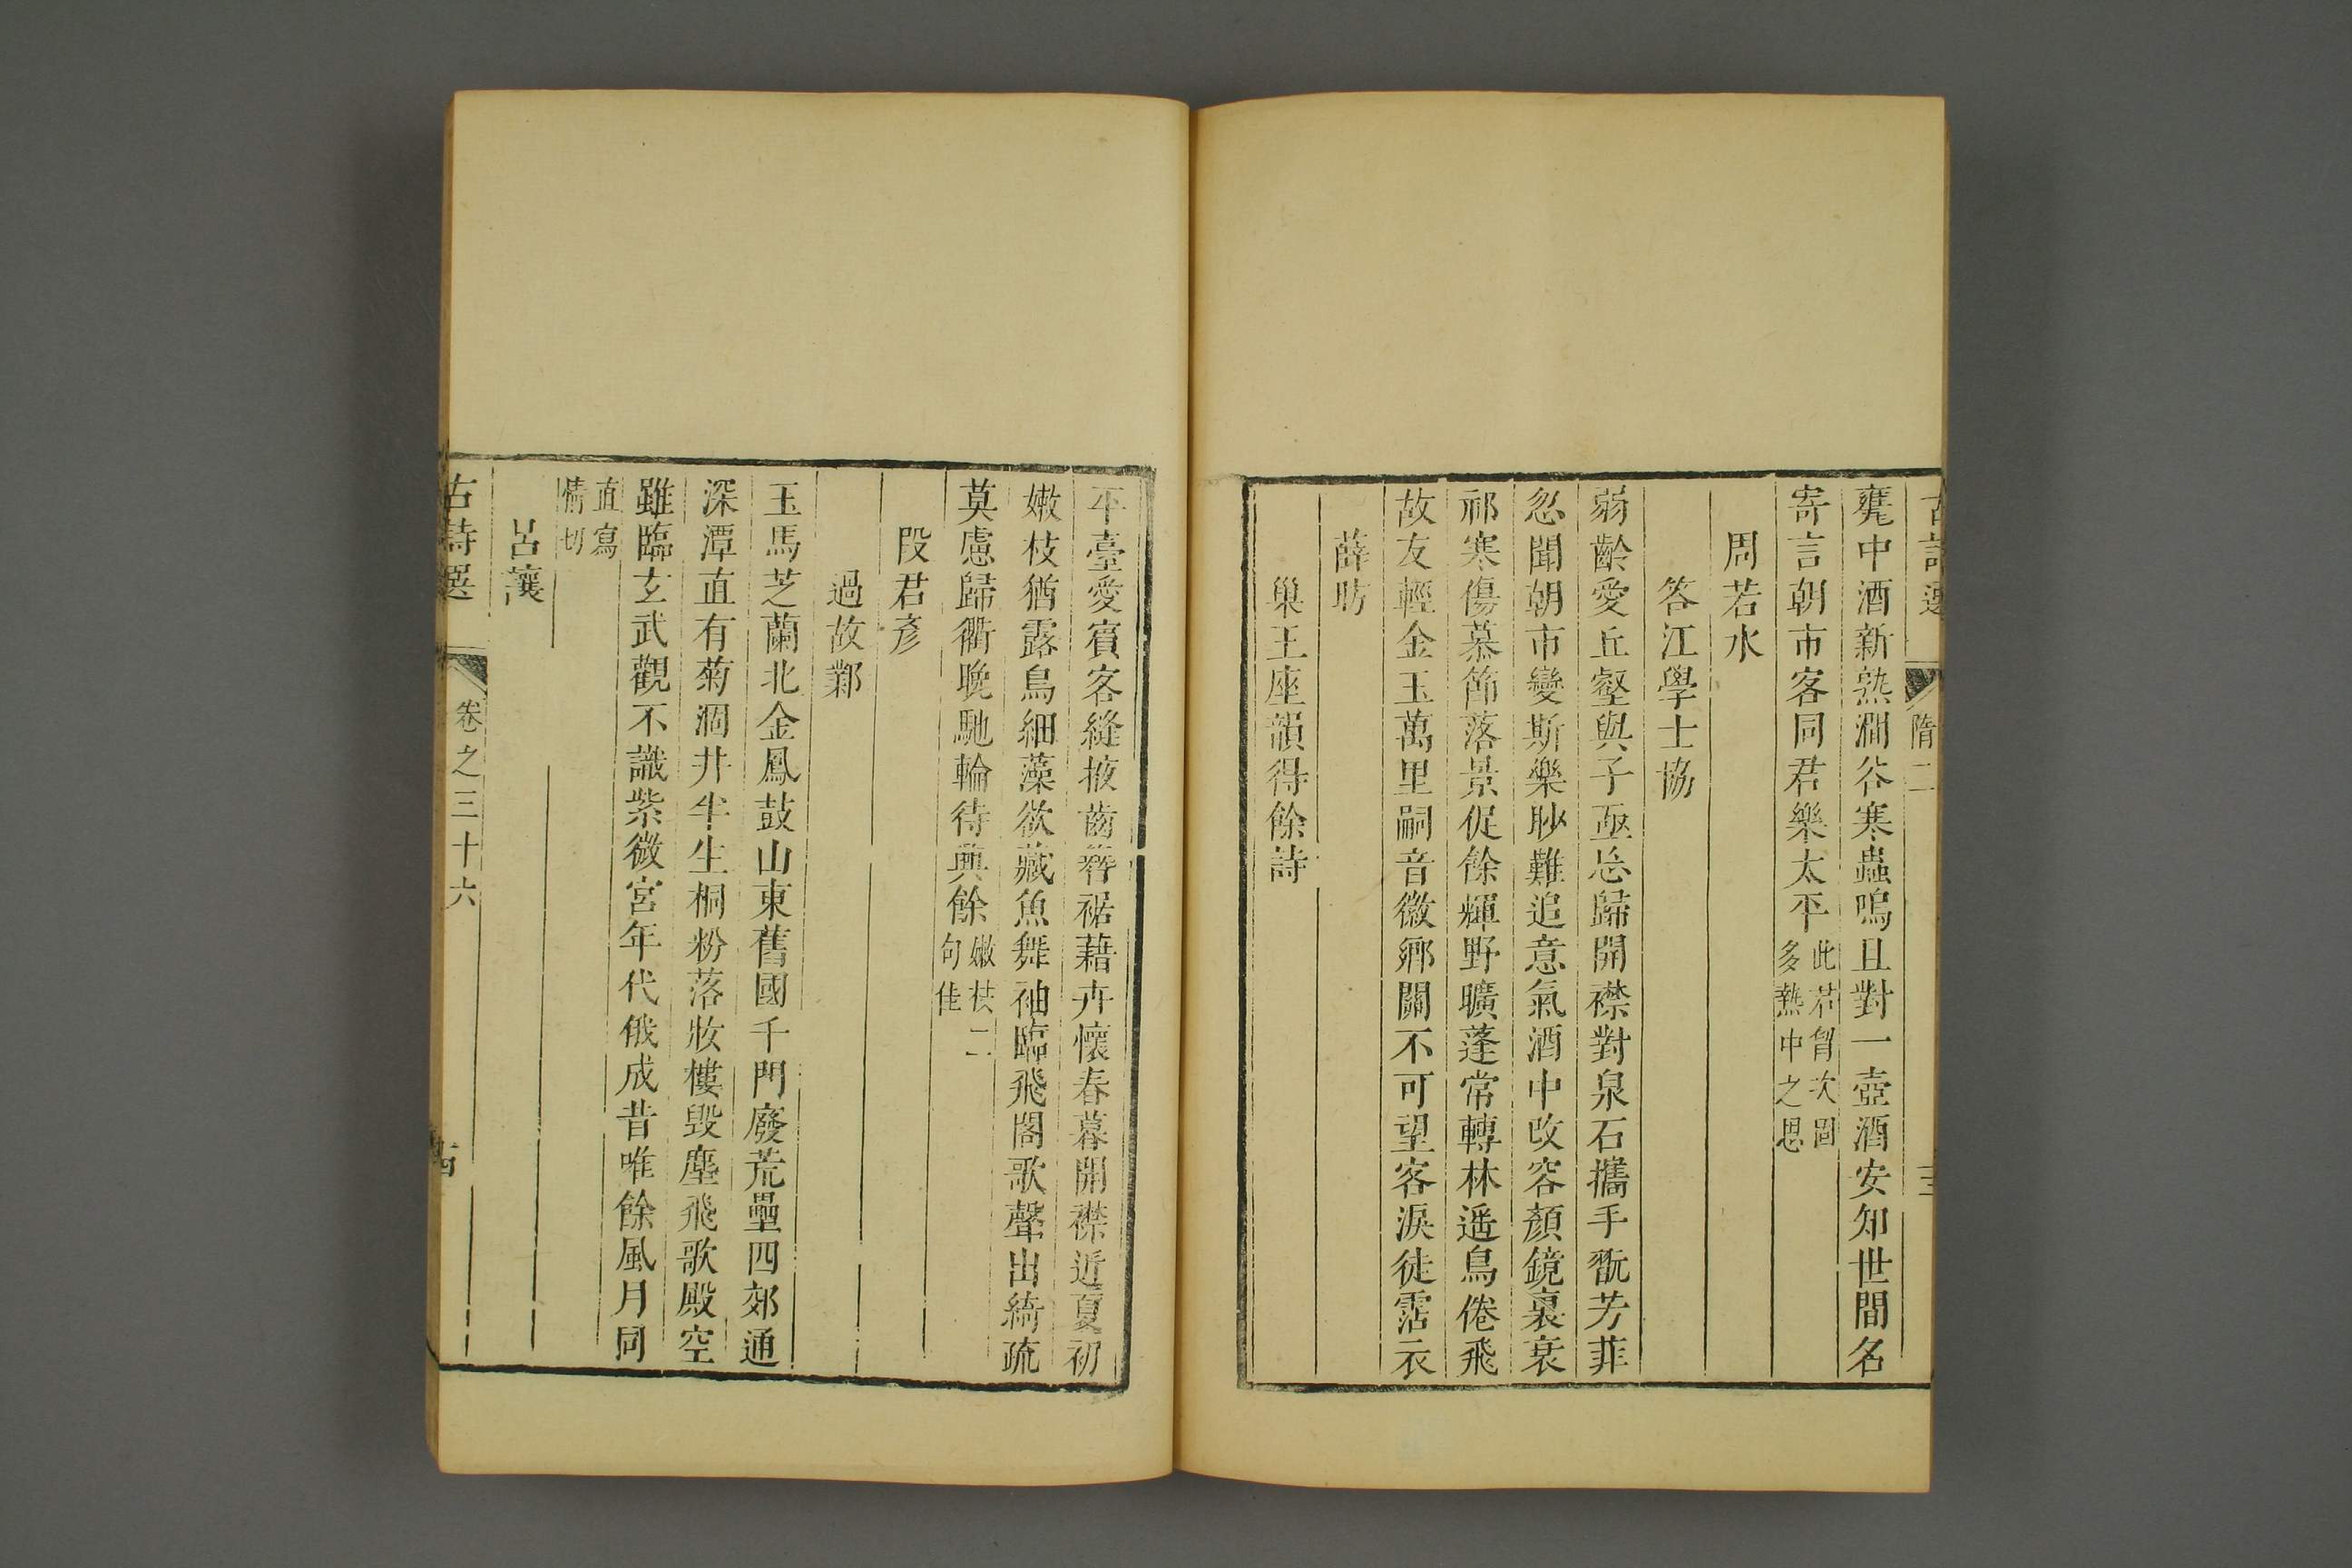 古詩選 隋二
甕中酒新熟澗谷寒蟲鳴且對一壺酒安知世間名
寄言朝市客同君樂太平
此君胷次圖
多熱中之思
周若水
答江學士協
弱齡愛丘壑與子亟忘歸開襟對泉石攜手翫芳菲
忽聞朝市變斯樂眇難追意氣酒中改容顏鏡裏衰
祁寒傷慕節落景促餘輝野曠蓬常轉林遥鳥倦飛
故友輕金玉萬里嗣音徽鄉關不可望客淚徒霑衣
薛昉
巢王座韻得餘詩
平臺愛賓客縫掖齒簪裾藉卉懷春暮開襟近夏初
嫩枝猶露鳥細藻欲藏魚舞袖臨飛閣歌聲出綺疏
莫慮歸衢晚馳輪待興餘
嫩枝二
句佳
段君彥
過故鄴
玉馬芝蘭北金鳳鼓山東舊國千門廢荒壘四郊通
深潭直有菊涸井半生桐粉落妝樓毀塵飛歌殿空
雖臨玄武觀不識紫微宮年代俄成昔唯餘風月同
直寫
情切
呂讓
古詩選 卷之三十六